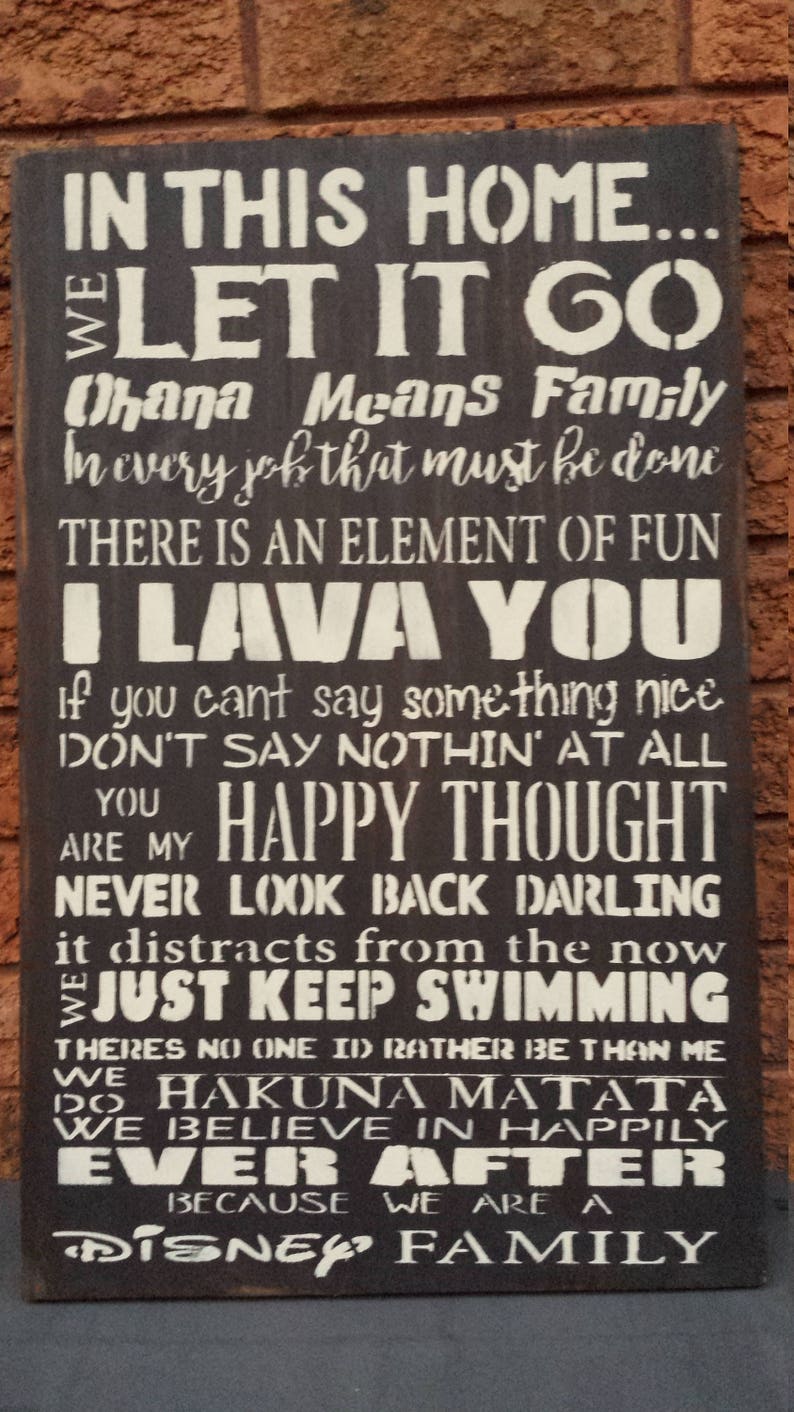 IN THIS HOME...
WE LET IT GO
Ohana Means Family
In every job that must be done
THERE IS AN ELEMENT OF FUN
I LAVA YOU
If you cant say something nice
DON'T SAY NOTHIN' AT ALL
YOU ARE MY HAPPY THOUGHT
NEVER LOOK BACK DARLING
it distracts from the now
WE JUST KEEP SWIMMING
THERES NO ONE ID RATHER BE THAN ME
WE DO HAKUNA MATATA
WE BELIEVE IN HAPPILY
EVER AFTER
BECAUSE WE ARE A
DISNEY FAMILY